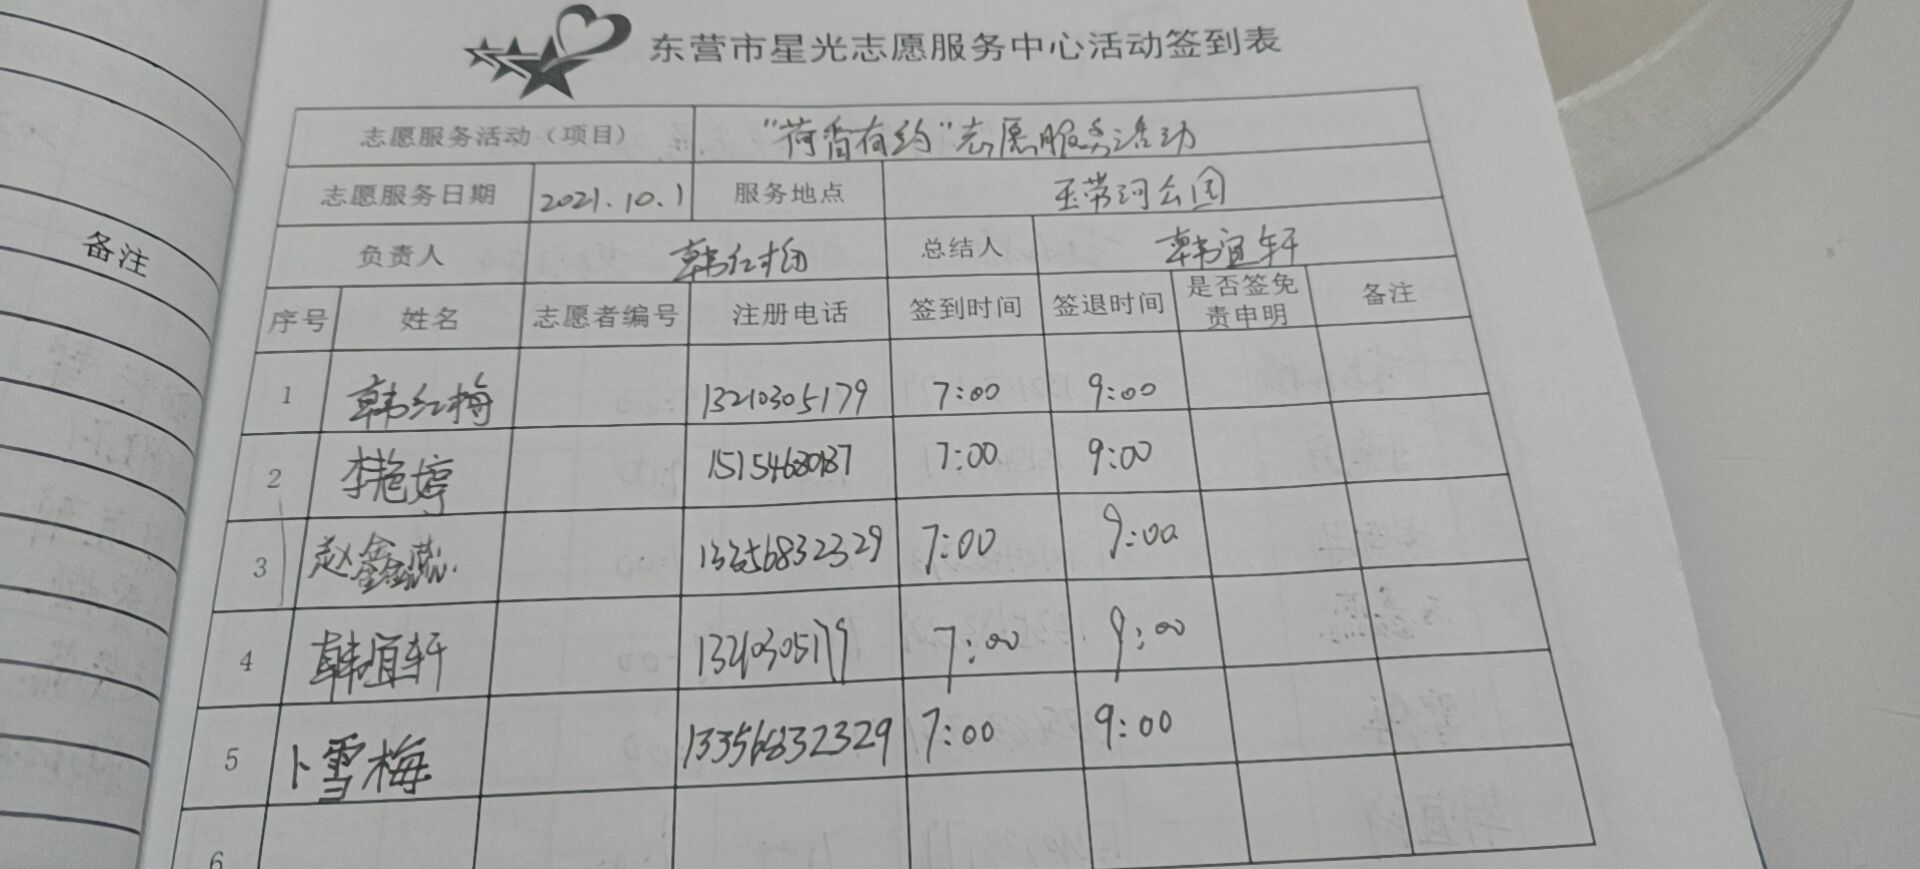 备注
东营市星光志愿服务中心活动签到表
志愿服务活动（项目） “荷香有约”志愿服务活动
志愿服务日期 2021.10.1 服务地点 玉带河公园
负责人 韩红梅 总结人 韩宜轩
序号 姓名 志愿者编号 注册电话 签到时间 签退时间 是否签免责申明 备注
1 韩红梅 13210305179 7:00 9:00
2 李艳婷 7:00 9:00
3 赵鑫蕊 13356832329 7:00 9:00
4 韩宜轩 13210305179 7:00 9:00
5 卜雪梅 13356832329 7:00 9:00
6